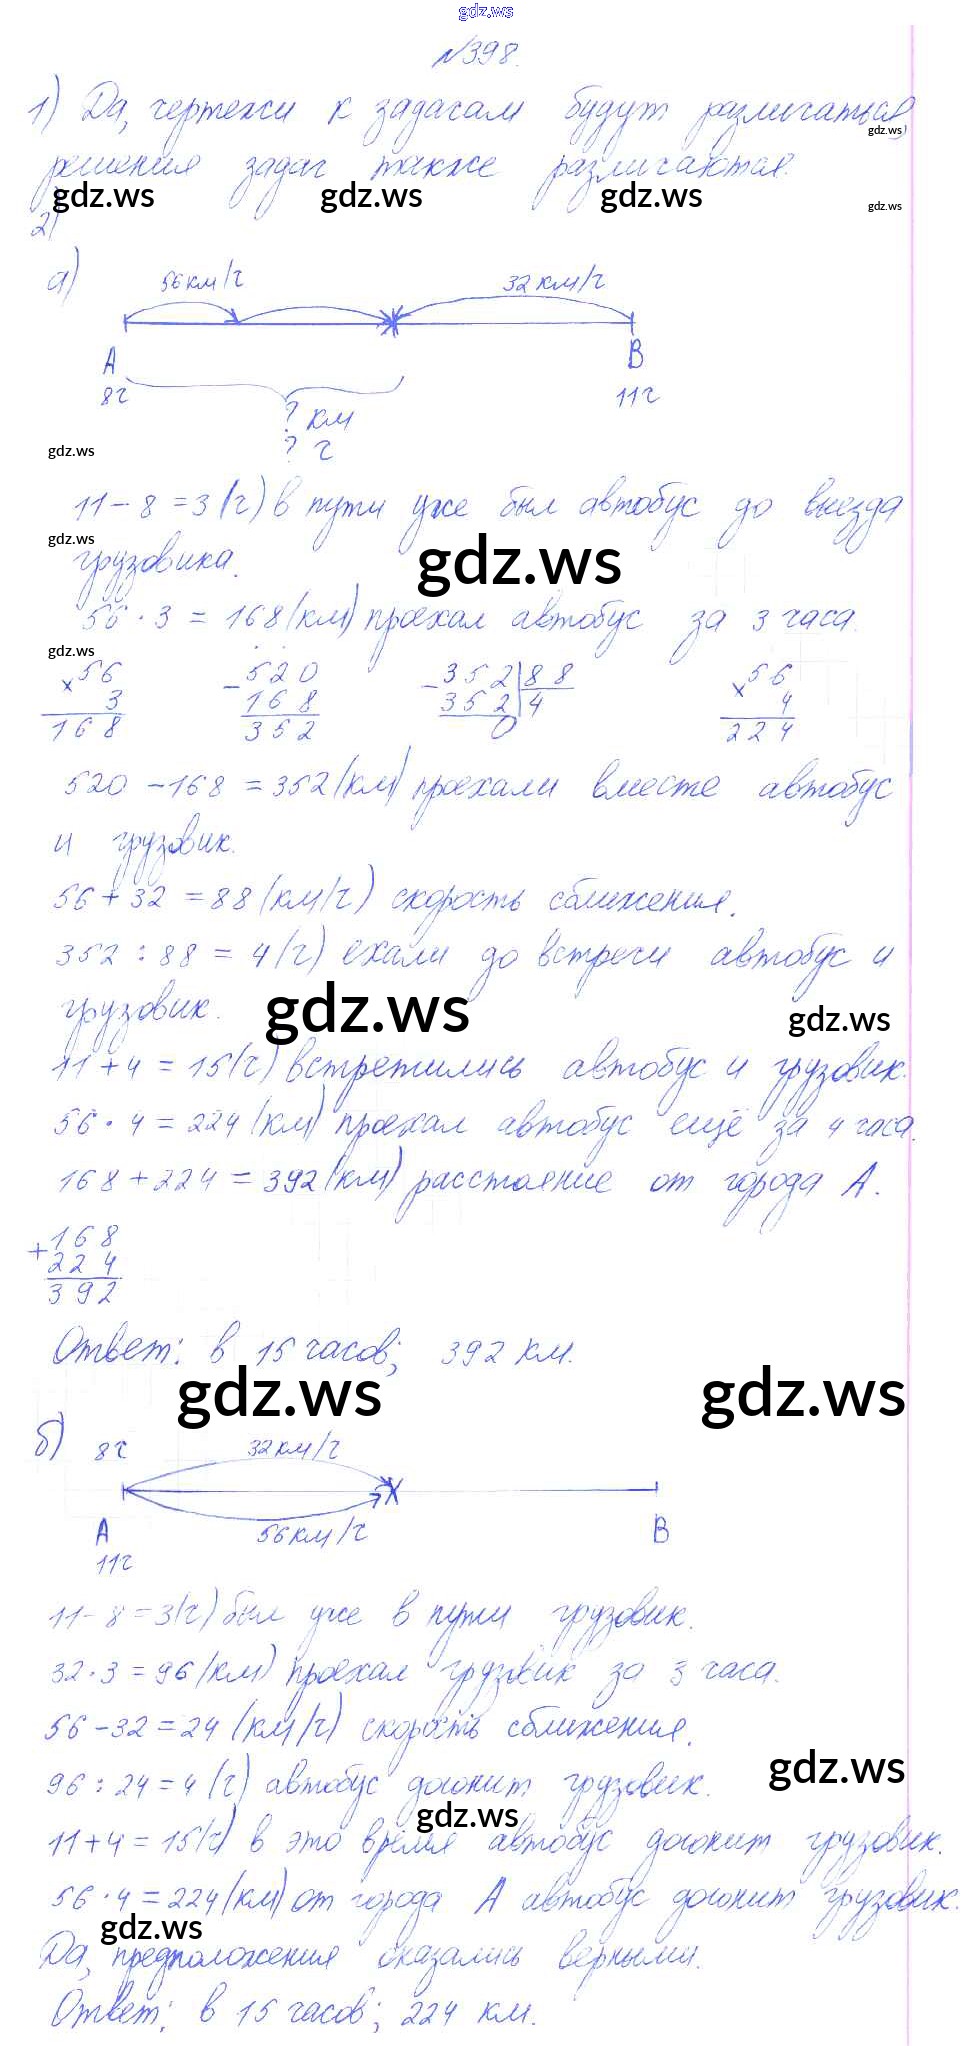 gdz.ws
№398.
1) Да, чертежи к задачам будут различаться,
gdz.ws
решения задач также различаются.
gdz.ws gdz.ws gdz.ws gdz.ws
2)
а) 56 км/ч 32 км/ч
А В
8 ч 11 ч
? км
? ч
gdz.ws
11 - 8 = 3 (ч) в пути уже был автобус до выезда
gdz.ws
грузовика.
gdz.ws
56 · 3 = 168 (км) проехал автобус за 3 часа.
gdz.ws
× 56 - 520 - 352 | 88 × 56
3 168 352 | 4 4
168 352 0 224
520 - 168 = 352 (км) проехали вместе автобус
и грузовик.
56 + 32 = 88 (км/ч) скорость сближения.
352 : 88 = 4 (ч) ехали до встречи автобус и
грузовик.
gdz.ws gdz.ws
11 + 4 = 15 (ч) встретились автобус и грузовик.
56 · 4 = 224 (км) проехал автобус ещё за 4 часа.
168 + 224 = 392 (км) расстояние от города А.
+ 168
224
392
Ответ: в 15 часов; 392 км.
gdz.ws gdz.ws
б) 8 ч 32 км/ч
А 56 км/ч В
11 ч
11 - 8 = 3 (ч) был уже в пути грузовик.
32 · 3 = 96 (км) проехал грузовик за 3 часа.
56 - 32 = 24 (км/ч) скорость сближения.
gdz.ws
96 : 24 = 4 (ч) автобус догонит грузовик.
gdz.ws
11 + 4 = 15 (ч) в это время автобус догонит грузовик.
56 · 4 = 224 (км) от города А автобус догонит грузовик.
gdz.ws
Да, предположения оказались верными.
Ответ: в 15 часов; 224 км.